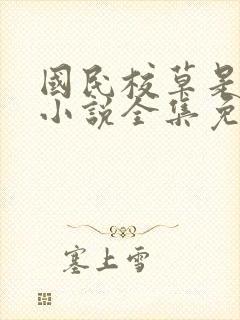 國民校草是
小說全集免
塞上雪